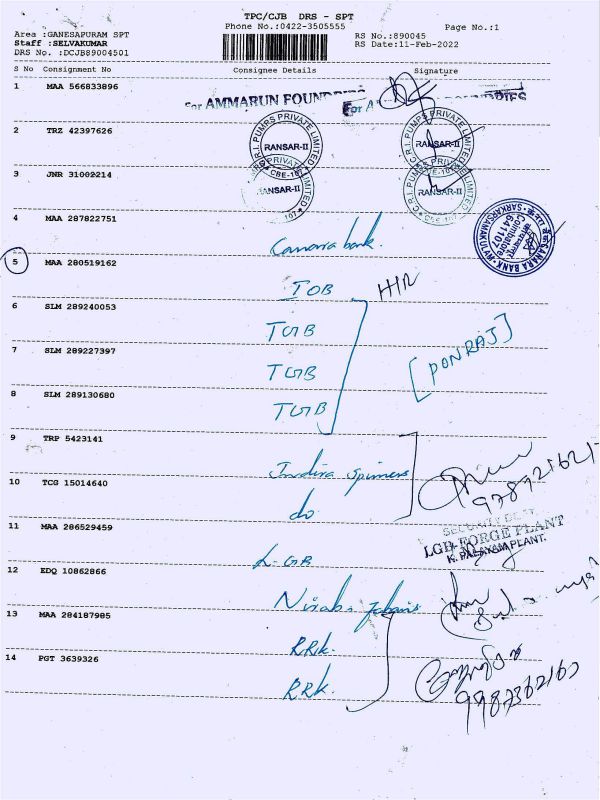 TPC/CJB DRS - SPT
Phone No.:0422-3505555
Page No.:1
Area :GANESAPURAM SPT
Staff :SELVAKUMAR
DRS No. :DCJB89004501
RS No.:890045
RS Date:11-Feb-2022
S No Consignment No Consignee Details Signature
1 MAA 566833896
For AMMARUN FOUNDRIES
2 TRZ 42397626
C.R.I. PUMPS PRIVATE LIMITED
RANSAR-II
C.R.I. PUMPS PRIVATE LIMITED
RANSAR-II
3 JNR 31002214
RANSAR-II
RANSAR-II
4 MAA 287822751 Canara bank.
5 MAA 280519162 IOB
6 SLM 289240053 TGB
7 SLM 289227397 TGB
[PONRAJ]
8 SLM 289130680 TGB
9 TRP 5423141 Indira Spinners
10 TCG 15014640 do
11 MAA 286529459 LGB
SECURITY DEPT.
LGB FORGE PLANT
K. PALAYAM PLANT.
12 EDQ 10862866
13 MAA 284187985 RRK.
14 PGT 3639326 RRK.